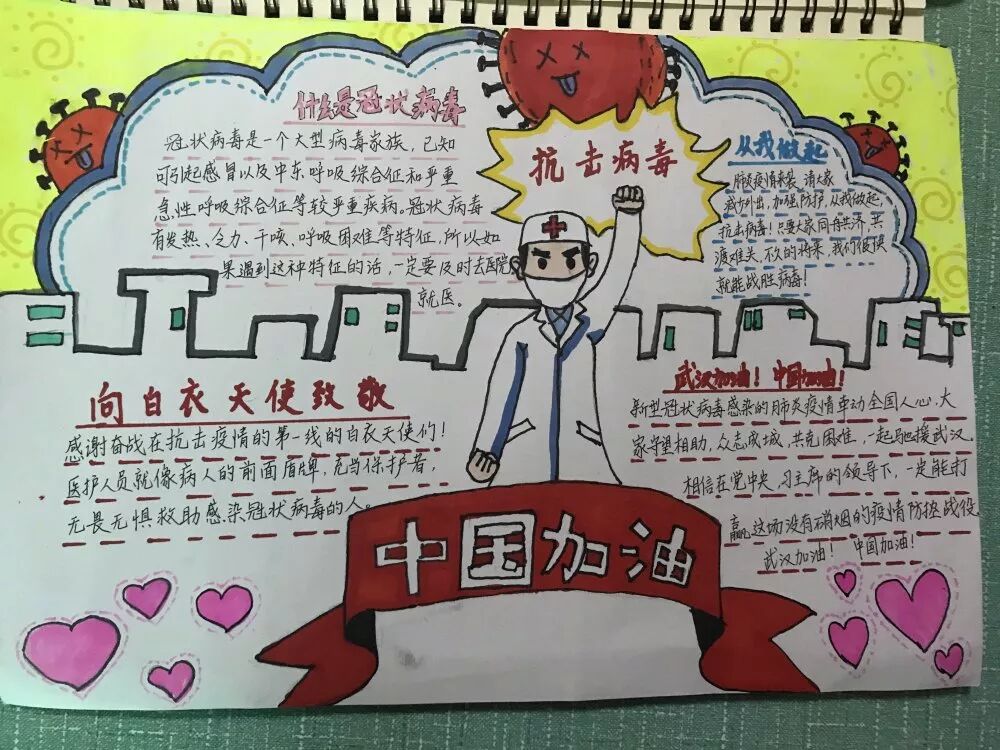 什么是冠状病毒
冠状病毒是一个大型病毒家族，已知
可引起感冒以及中东呼吸综合征和严重
急性呼吸综合征等较严重疾病。冠状病毒
有发热、乏力、干咳、呼吸困难等特征，所以如
果遇到这种特征的话，一定要及时去医院
就医。
抗击病毒
从我做起
肺炎疫情来袭，请大家
减少外出，加强防护，从我做起，
抗击病毒！只要大家同舟共济，共
渡难关，不久的将来，我们很快
就能战胜病毒！
向白衣天使致敬
感谢奋战在抗击疫情的第一线的白衣天使们！
医护人员就像病人的前面盾牌，充当保护者，
无畏无惧救助感染冠状病毒的人。
武汉加油！中国加油！
新型冠状病毒感染的肺炎疫情牵动全国人心，大
家守望相助，众志成城，共克困难，一起驰援武汉。
相信在党中央、习主席的领导下，一定能打
赢这场没有硝烟的疫情防控战役。
武汉加油！中国加油！
中国加油